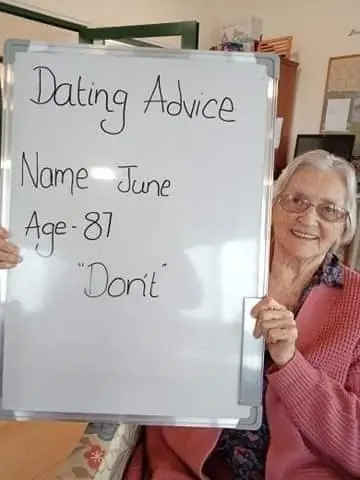 Dating Advice
Name June
Age-87
"Don't"